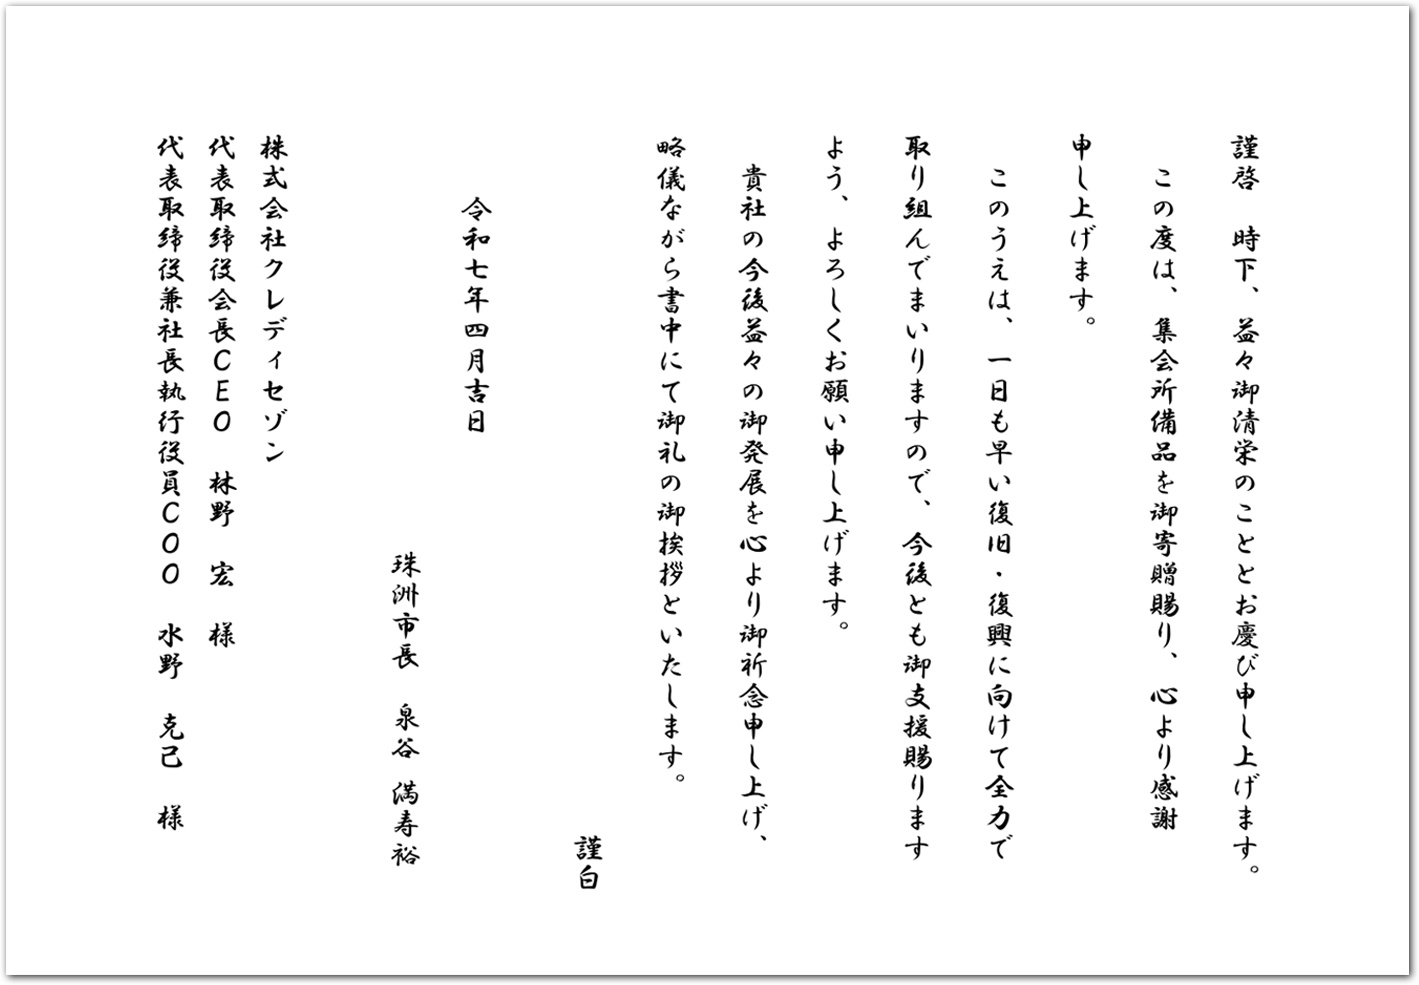 謹啓　時下、益々御清栄のこととお慶び申し上げます。
　この度は、集会所備品を御寄贈賜り、心より感謝
申し上げます。
　このうえは、一日も早い復旧・復興に向けて全力で
取り組んでまいりますので、今後とも御支援賜ります
よう、よろしくお願い申し上げます。
　貴社の今後益々の御発展を心より御祈念申し上げ、
略儀ながら書中にて御礼の御挨拶といたします。
謹白
令和七年四月吉日
珠洲市長　泉谷 満寿裕
株式会社クレディセゾン
代表取締役会長ＣＥＯ　林野　宏　様
代表取締役兼社長執行役員ＣＯＯ　水野　克己　様